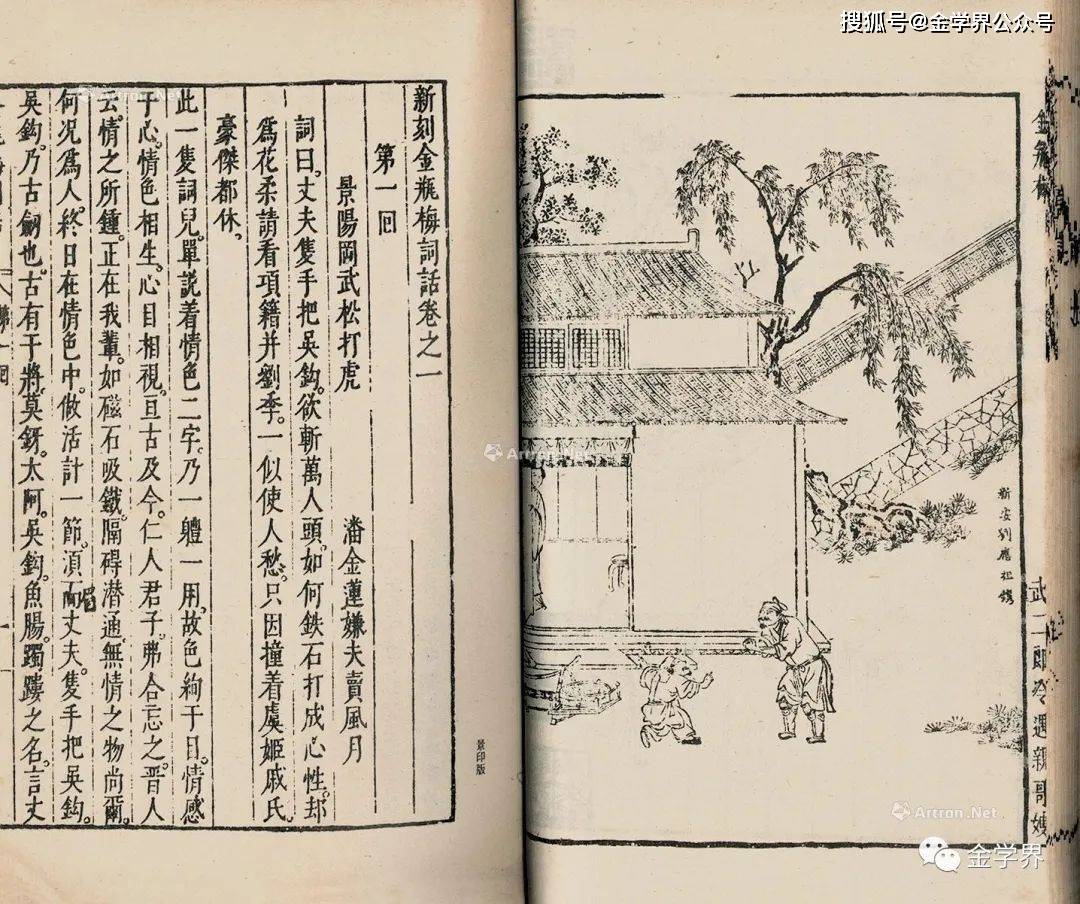 搜狐号@金学界公众号
新刻金瓶梅詞話卷之一
第一回
景陽岡武松打虎 潘金蓮嫌夫賣風月
詞曰。丈夫隻手把吳鈎。欲斬萬人頭。如何鉄石打成心性。却
爲花柔請看項籍并劉季。一似使人愁。只因撞着虞姬戚氏。
豪傑都休。
此一隻詞兒。單說着情色二字。乃一體一用。故色絢于目。情感
于心。情色相生。心目相視。亘古及今。仁人君子。弗合忘之。晋人
云。情之所鍾。正在我輩。如磁石吸鐵。隔碍潜通。無情之物尚爾。
何况爲人終日在情色中。做活計一節。須而丈夫隻手把吳鈎。
吳鈎。乃古劒也。古有干將。莫鋣。太阿。吳鈎。魚腸。躅䠱之名。言丈
第一回
景印版
金瓶梅
新安劉應祖鐫
武二郎冷遇親哥嫂
Artron.Net
Artron.Net
Artron.Net
金学界